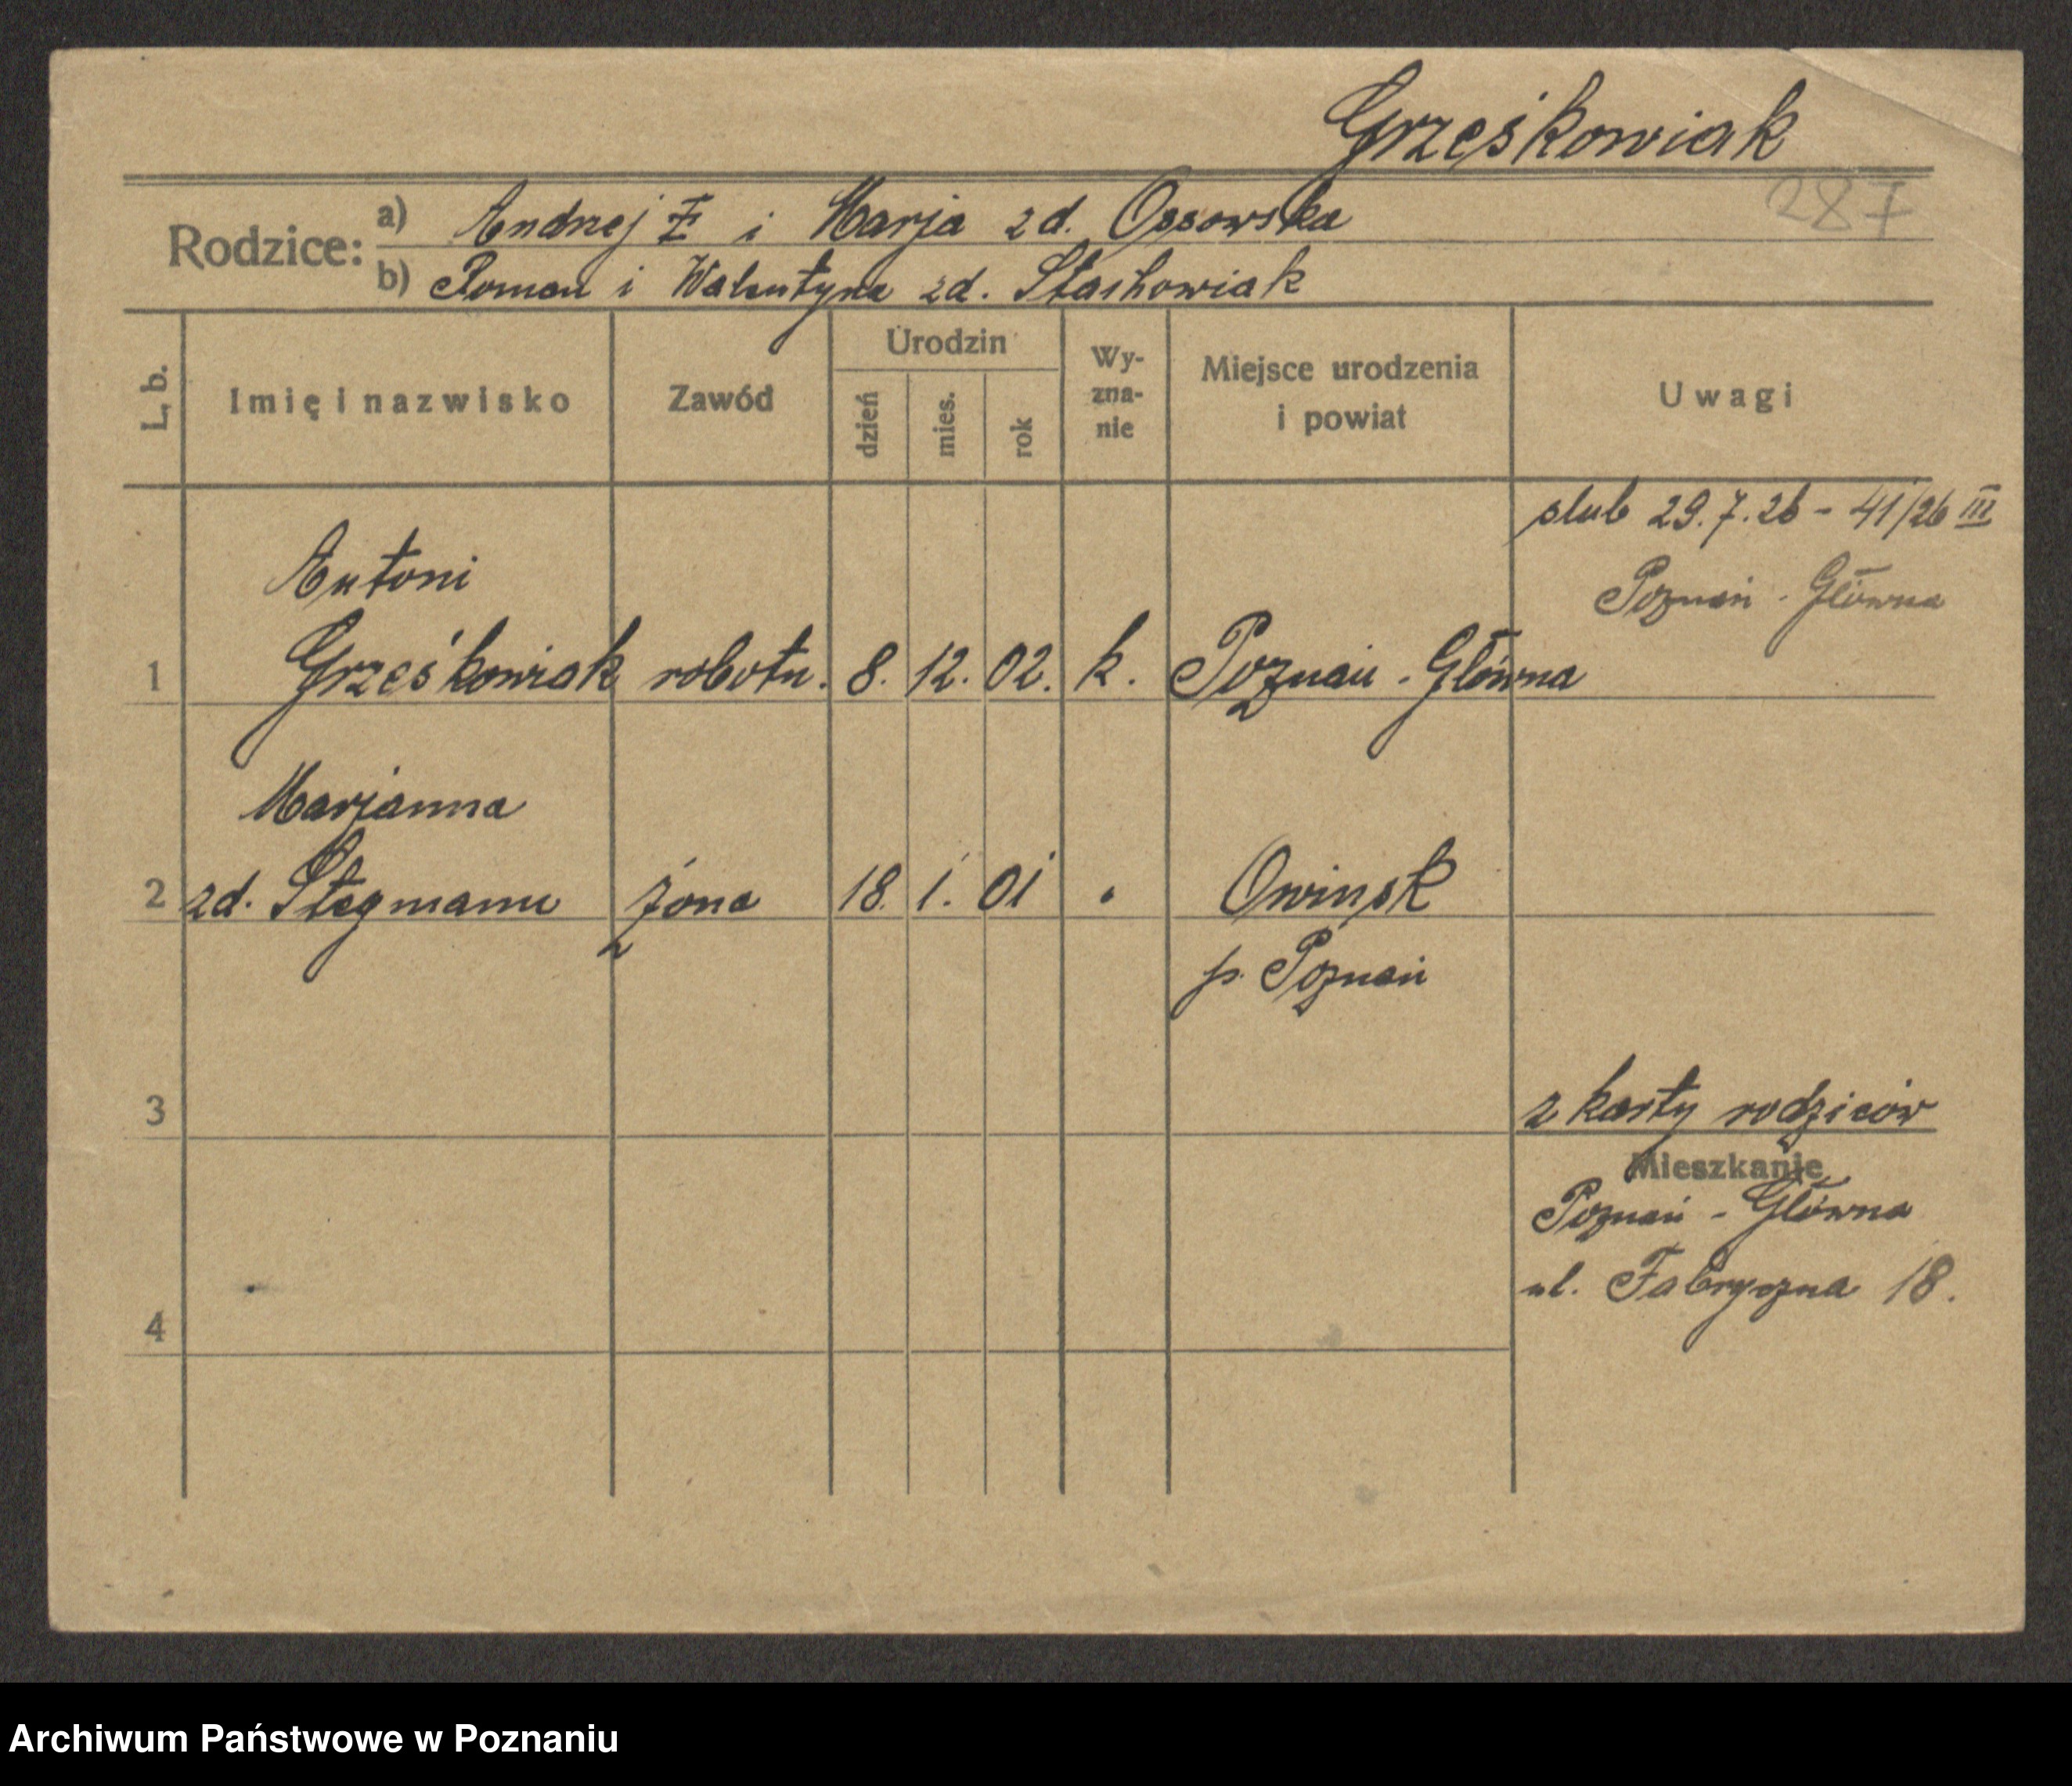 Grześkowiak
287
Rodzice:
a) Andrzej I i Marja zd. Ossowska
b) Roman i Walentyna zd. Stachowiak
L, b.
Imię i nazwisko
Zawód
Urodzin
dzień
mies.
rok
Wy-
zna-
nie
Miejsce urodzenia
i powiat
Uwagi
ślub 29.7.26 - 41/26 III
Poznań - Główna
Antoni
1 Grześkowiak robotn. 8. 12. 02. k. Poznań - Główna
Marjanna
2 zd. Stegmann żona 18. 1. 01 " Owinsk
p. Poznań
3
z karty rodziców
Mieszkanie
Poznań - Główna
ul. Fabryczna 18.
4
Archiwum Państwowe w Poznaniu